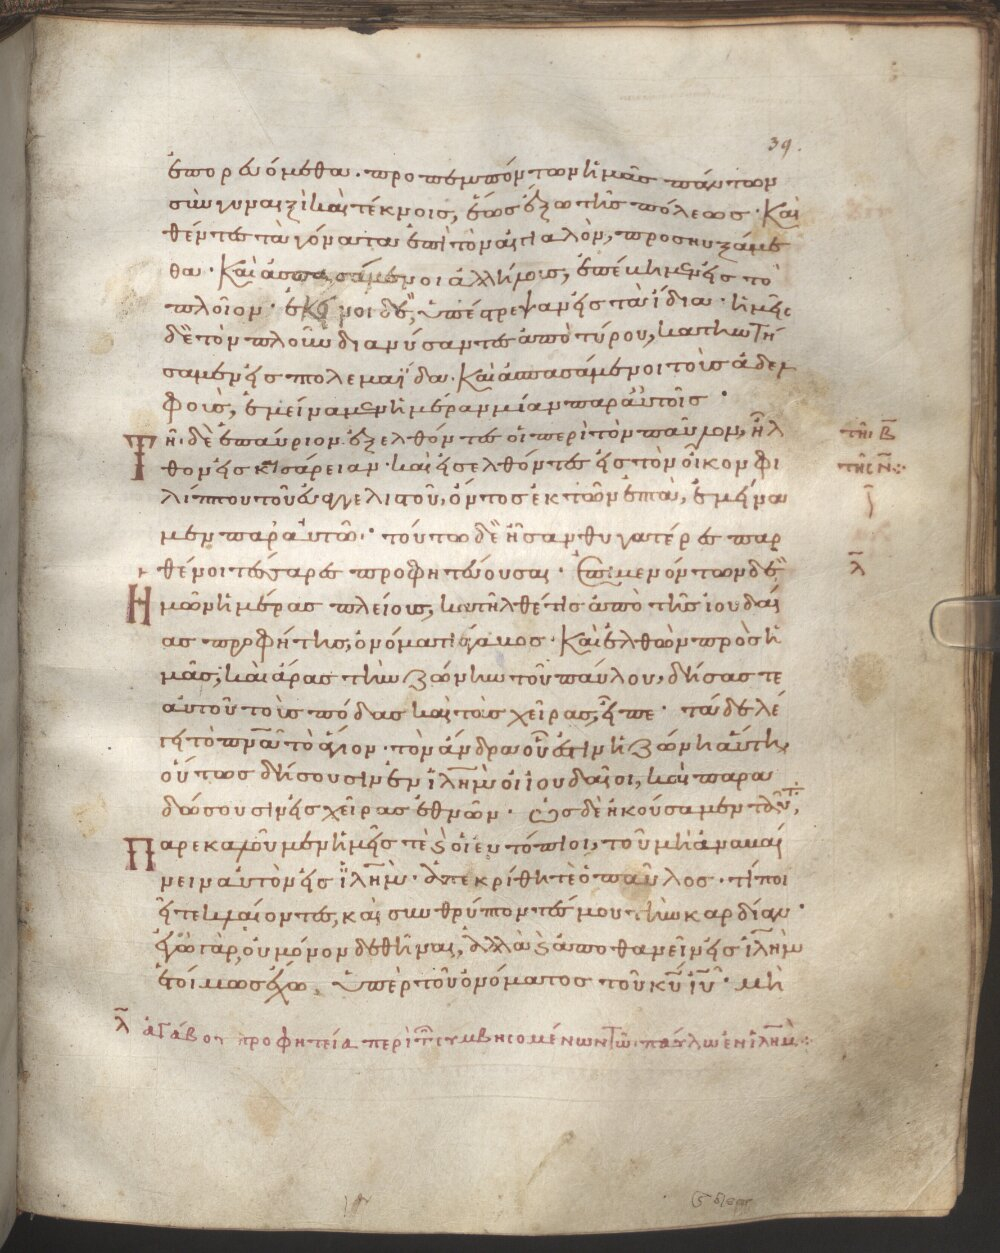 39.
ἐπορευόμεθα· προπεμπόντων ἡμᾶς πάντων
σὺν γυναιξὶ καὶ τέκνοις, ἕως ἔξω τῆς πόλεως· Καὶ
θέντες τὰ γόνατα ἐπὶ τὸν αἰγιαλὸν, προσηυξάμε
θα· Καὶ ἀσπασάμενοι ἀλλήλοις, ἐπέβημεν εἰς τὸ
πλοῖον· ἐκεῖνοι δὲ, ὑπέστρεψαν εἰς τὰ ἴδια· ἡμεῖς
δὲ τὸν πλοῦν διανύσαντες ἀπὸ τύρου, κατηντή
σαμεν εἰς πτολεμαΐδα· Καὶ ἀσπασάμενοι τοὺς ἀδελ
φοὺς, ἐμείναμεν ἡμέραν μίαν παρ' αὐτοῖς·
Τῆ δὲ ἐπαύριον ἐξελθόντες οἱ περὶ τὸν παῦλον, ἦλ
θον εἰς καισάρειαν· καὶ εἰσελθόντες εἰς τὸν οἶκον φι
λίππου τοῦ εὐαγγελιστοῦ, ὄντος ἐκ τῶν ἑπτὰ, ἐμείνα
μεν παρ' αὐτῶ· τούτω δὲ ἦσαν θυγατέρες παρ
θένοι τέσσαρες προφητεύουσαι· Ἐπιμενόντων δὲ
ἡμῶν ἡμέρας πλείους, κατῆλθέ τις ἀπὸ τῆς ἰουδαί
ας προφήτης, ὀνόματι ἄγαβος· Καὶ ἐλθὼν πρὸς ἡ
μᾶς, καὶ ἄρας τὴν ζώνην τοῦ παύλου, δήσας τε
αὐτοῦ τοὺς πόδας καὶ τὰς χεῖρας, εἶπε· τάδε λέ
γει τὸ πνα τὸ ἅγιον· τὸν ἄνδρα οὗ ἐστιν ἡ ζώνη αὕτη,
οὕτως δήσουσιν ἐν ἰλημ οἱ ἰουδαῖοι, καὶ παρα
δώσουσιν εἰς χεῖρας ἐθνῶν· Ὡς δὲ ἠκούσαμεν ταῦτ,
Παρεκαλοῦμεν ἡμεῖς τὲ καὶ οἱ ἐντόπιοι, τοῦ μὴ ἀναβαί
νειν αὐτὸν εἰς ἰλημ· ἀπεκρίθη τὲ ὁ παῦλος· τί ποι
εῖτε κλαίοντες, καὶ συνθρύπτοντές μου τὴν καρδίαν·
ἐγὼ γὰρ, οὐ μόνον δεθῆναι, ἀλλὰ καὶ ἀποθανεῖν εἰς ἰλημ
ἑτοίμως ἔχω, ὑπὲρ τοῦ ὀνόματος τοῦ κυ ιυ· μὴ
τῆ Β
τῆς Ν
λ
λ ἀγάβου προφητεία περὶ τ συμβησομένων τῶ παύλω ἐν ἰλημ